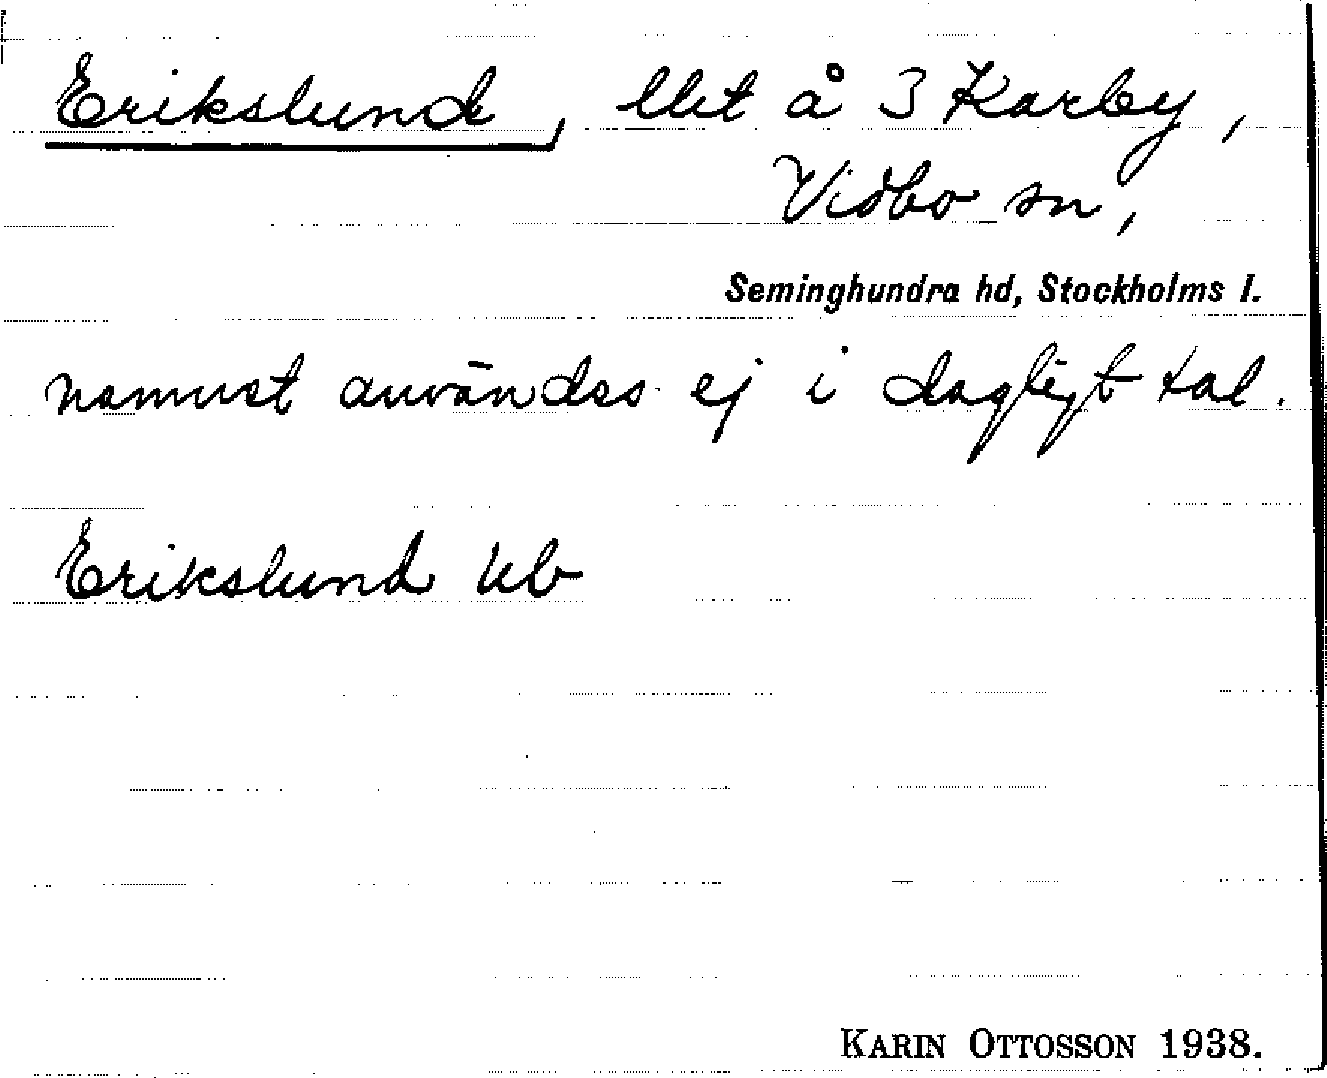 Erikslund, llet å 3 Karby,
Vidbo sn,
Seminghundra hd, Stockholms l.
namnet användes ej i dagligt tal.
Erikslund kb
KARIN OTTOSSON 1938.